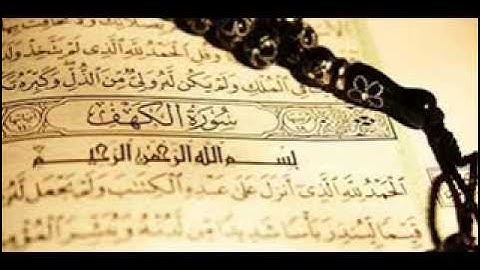 وَقُلِ ٱلْحَمْدُ لِلَّهِ ٱلَّذِى لَمْ يَتَّخِذْ
فِى ٱلْمُلْكِ وَلَمْ يَكُن لَّهُۥ وَلِىٌّ مِّنَ ٱلذُّلِّ وَكَبِّرْهُ
سُورَةُ الكَهْفِ
بِسْمِ اللهِ الرَّحْمَنِ الرَّحِيمِ
ٱلْحَمْدُ لِلَّهِ ٱلَّذِىٓ أَنزَلَ عَلَىٰ عَبْدِهِ ٱلْكِتَٰبَ وَلَمْ يَجْعَل لَّهُۥ
قَيِّمًا لِّيُنذِرَ بَأْسًا شَدِيدًا مِّن لَّدُنْهُ وَيُبَشِّرَ